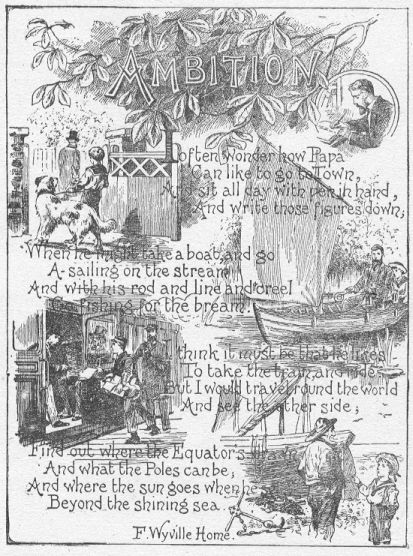 AMBITION.
I often wonder how Papa
Can like to go to Town,
And sit all day with pen in hand,
And write those figures down;
When he might take a boat and go
A-sailing on the stream
And with his rod and line and creel
Go fishing for the bream!
I think it must be that he likes
To take the train and ride
But I would travel round the world
And see the other side;
Find out where the Equator's drawn
And what the Poles can be,
And where the sun goes when he
Beyond the shining sea.
F. Wyville Home.